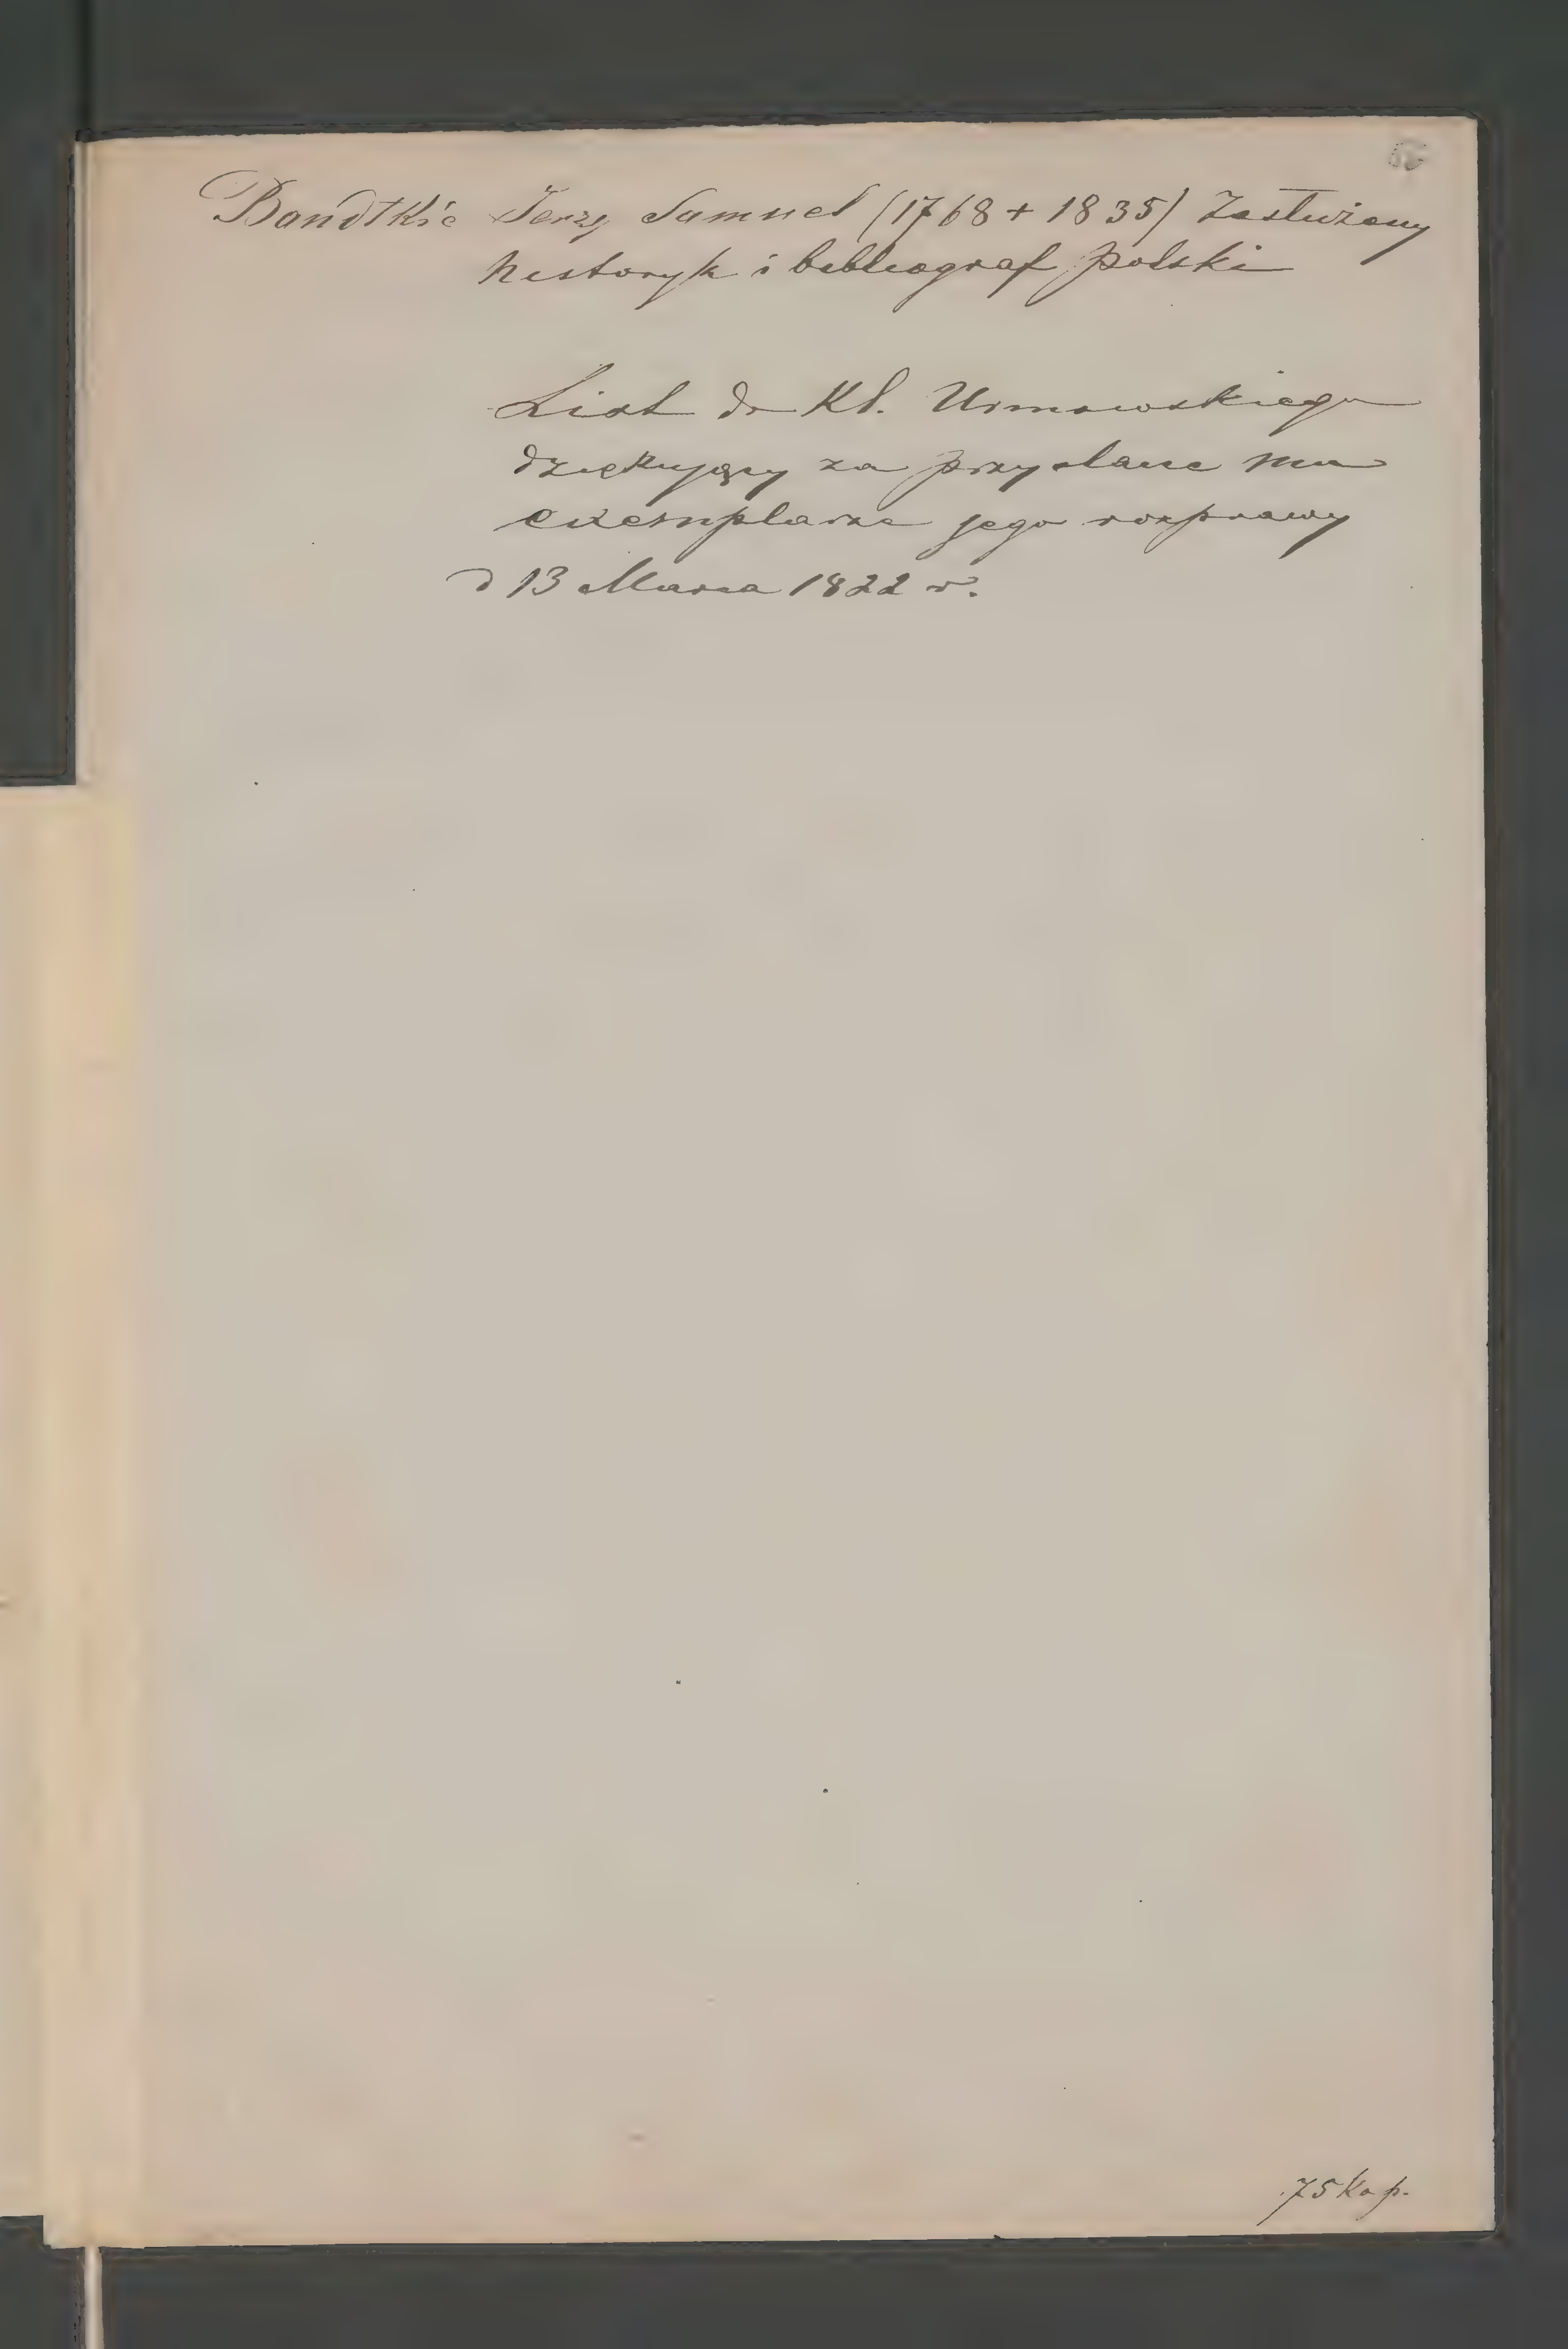 Bandtkie Jerzy Samuel (1768 + 1835) Zasłużony
historyk i bibliograf polski
List do Kl. Urmowskiego
dziękujący za przysłane mu
exemplarze jego rozprawy
d 13 Marca 1822 r.
75 Kop.